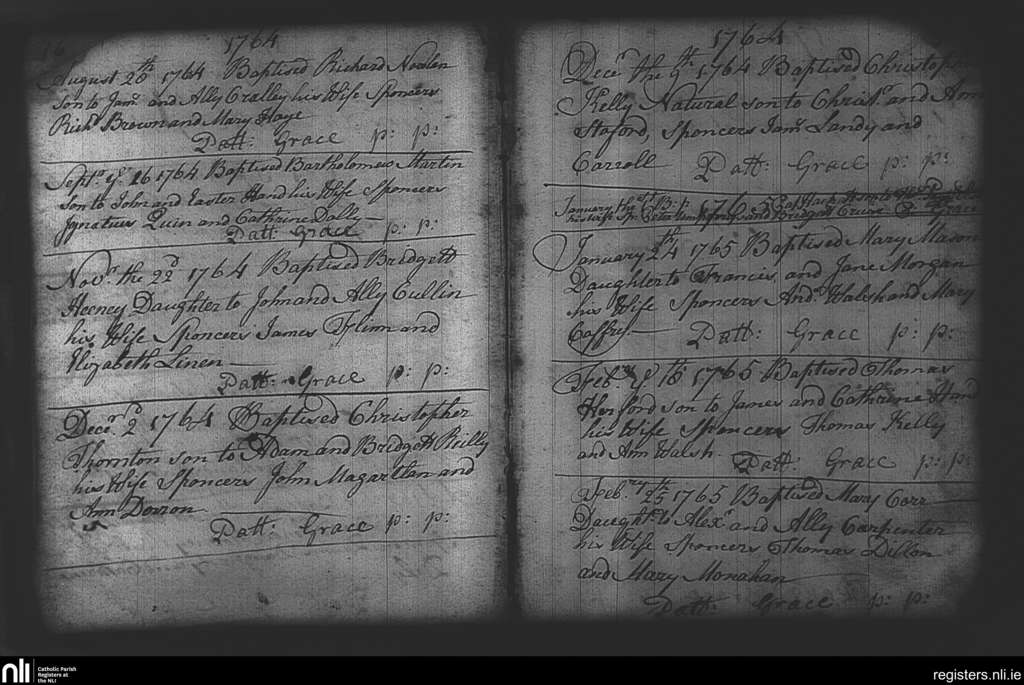 1764
August 26th 1764 Baptised Richard Nowlen
son to Jams. and Ally Cralley his Wife Sponcers
Richd Brown and Mary Haye
Patt: Grace p: p:
Septr. ye. 16 1764 Baptised Bartholomew Martin
son to John and Easter Hand his Wife Sponcers
Ignatius Quin and Cathrine Dally
Patt: Grace p: p:
Novr. the 22d 1764 Baptised Bredgett
Heeney Daughter to John and Ally Cullin
his Wife Sponcers James Flinn and
Elizabeth Linen
Patt: Grace p: p:
Decer. 2d 1764 Baptised Christopher
Thornton son to Adam and Bridgett Reilly
his Wife Sponcers John Magartlan and
Ann Dorron
Patt: Grace p: p:
1764
Decer. the 9th 1764 Baptised
Kelly Natural son to Christr. and
Staford, Sponcers Jams. Landy and
Carroll Patt: Grace p: p:
January the 1st 1765
his wife Sp: and Bridgett
January 24th 1765 Baptised Mary Mason
Daughter to Francis and Jane Morgan
his Wife Sponcers And. Walsh and Mary
Caffrey Patt: Grace p: p:
Feb.ry ye 16th 1765 Baptised Thomas
Herford son to James and Cathrine Hand
his Wife Spencers Thomas Kelly
and Ann Walsh. Patt: Grace p: p:
Feb.ry 25th 1765 Baptised Mary Carr
Daughtr. to Alexr and Ally Carpenter
his Wife Sponcers Thomas Dillon
and Mary Monahan
Patt: Grace p: p:
nli Catholic Parish
Registers at
the NLI
registers.nli.ie